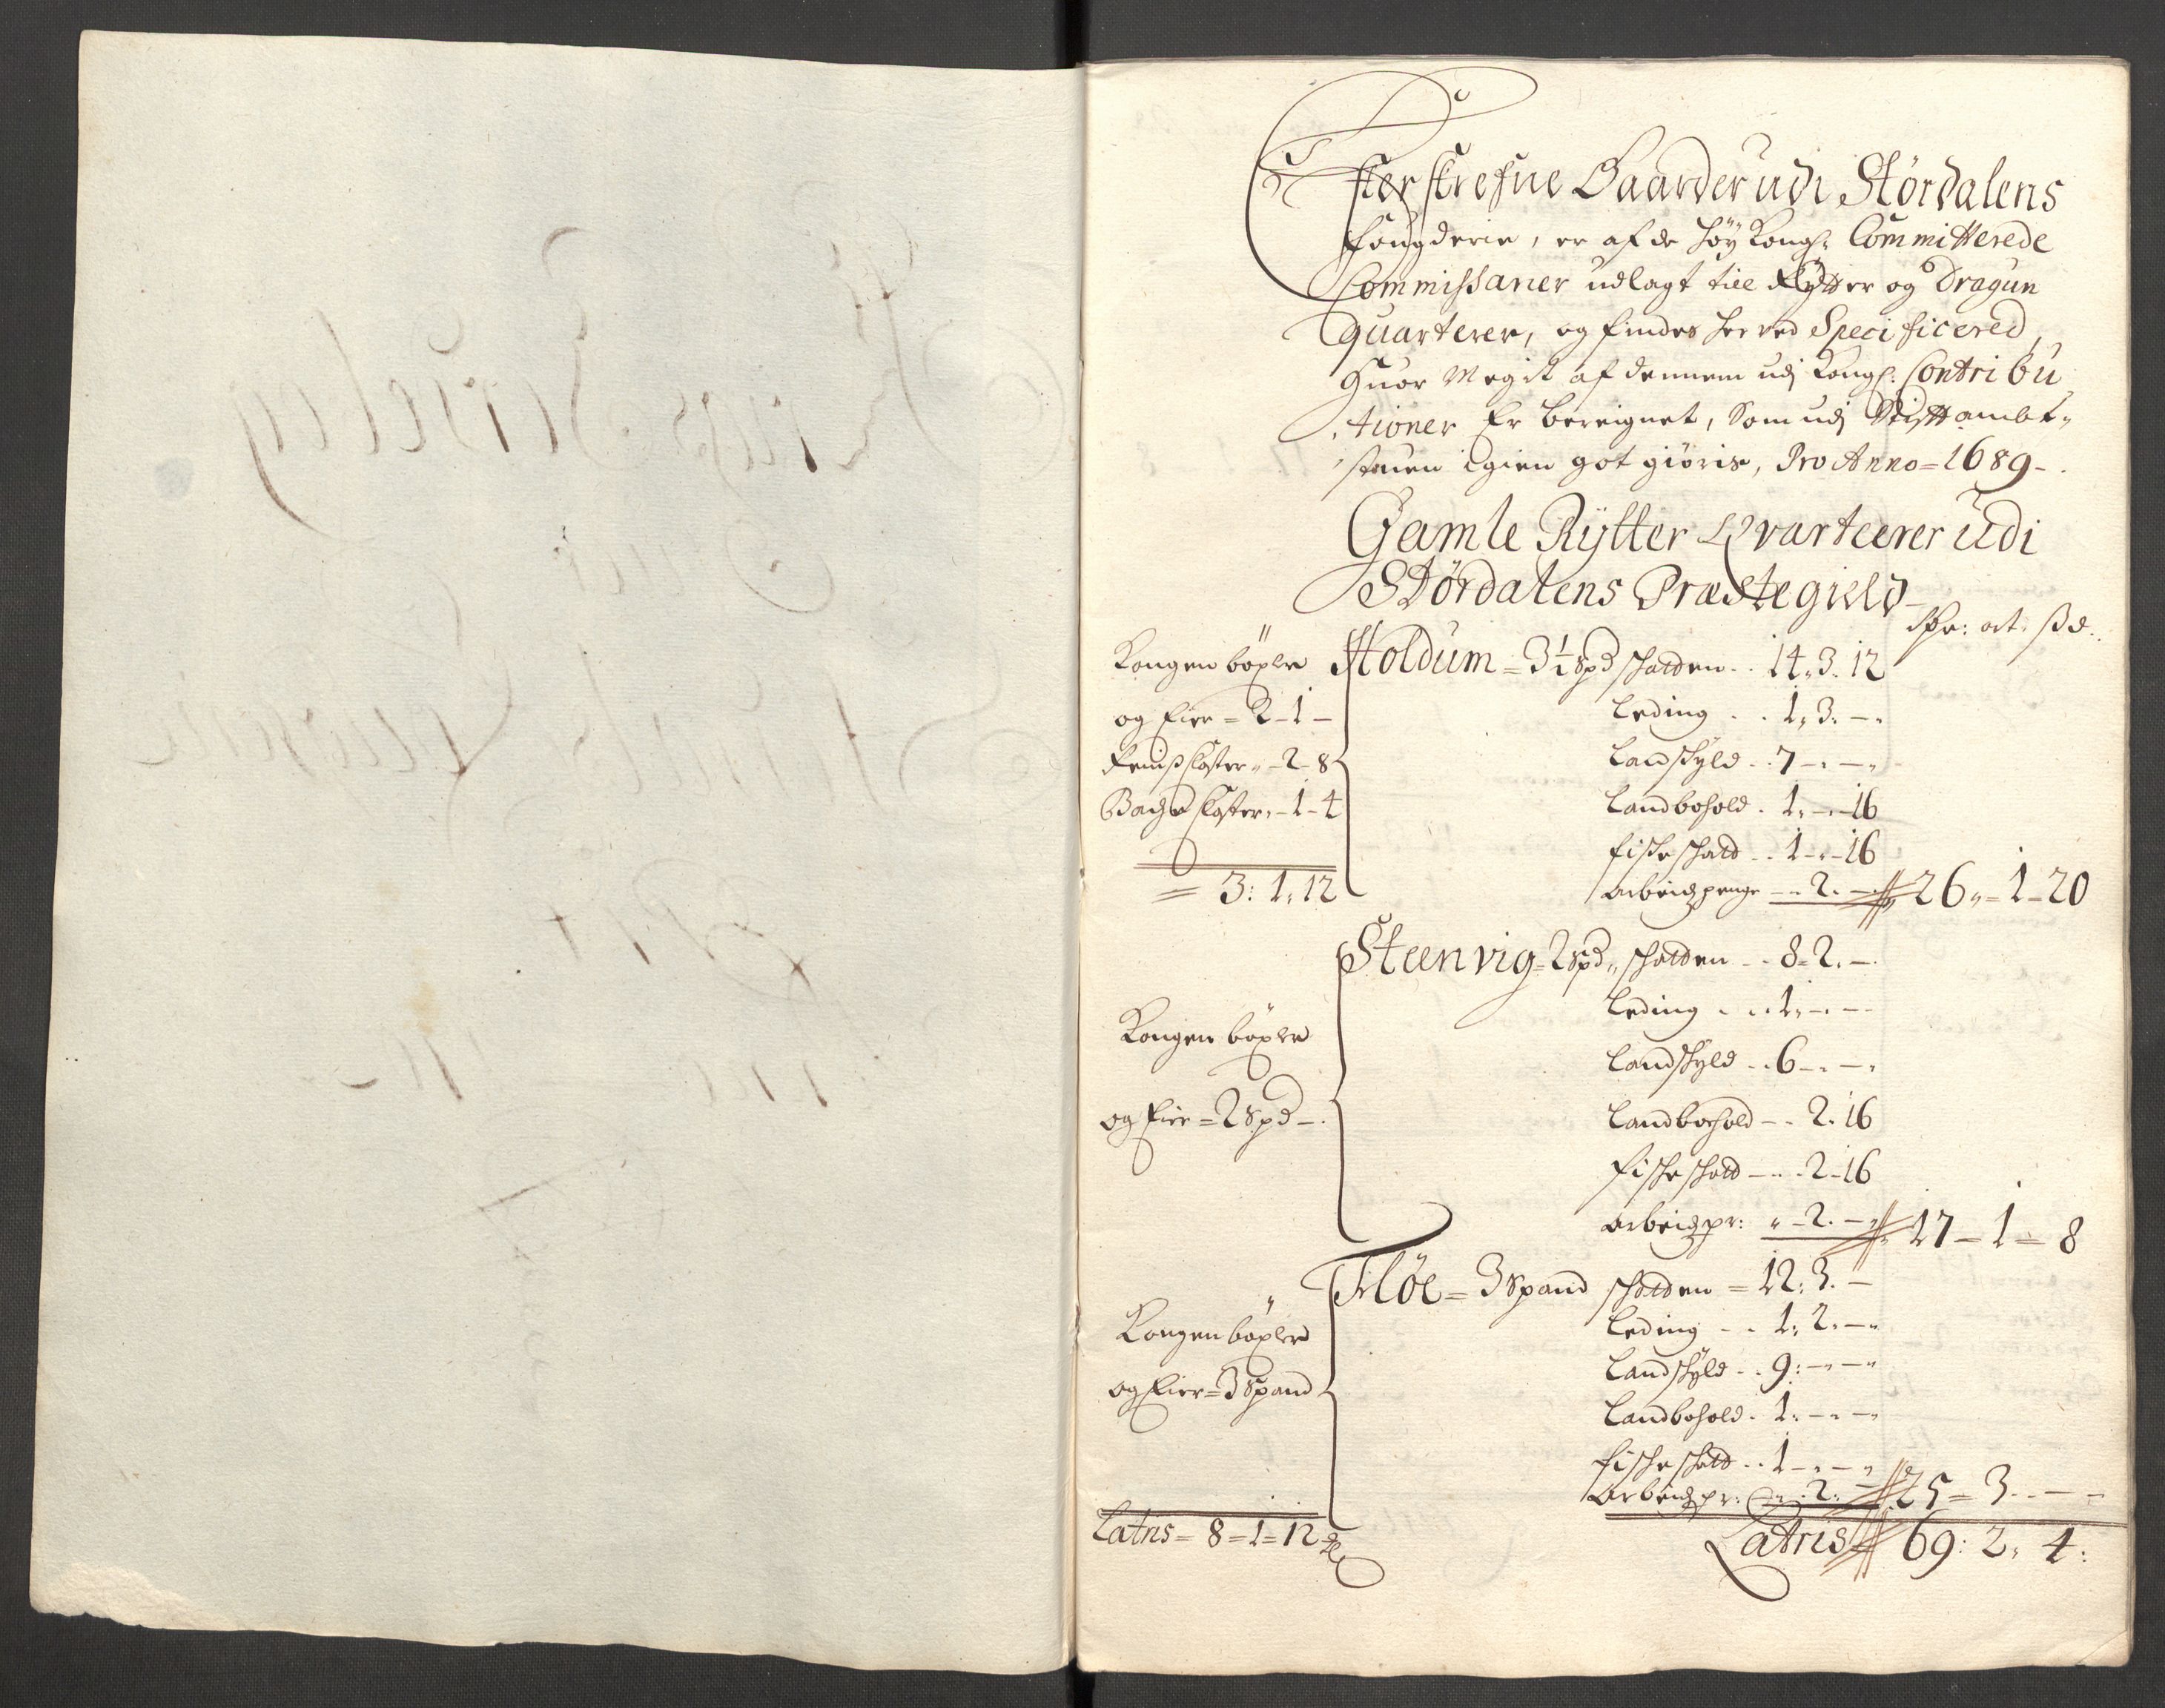 Efterskrefne Gaarder udi Stördalens
fougderie, er af de höy Kongl: Committerede
Commissarier udlagt till Rytter og Dragun
quarterer, og findes herved Specificered,
Huor Megit af dennem udj Kongl: Contribu
tioner Er bereignet, Som udj Stiftambt
stuen igien got giöris, Pro Anno = 1689 -
Gamle Rÿtter Qvarteerer Udi
Stördalens Præstegield
Rdr: ort: ß d.
Kongen böxler
og Eier = 2 - 1 -
Reinß Closter - 2 - 8
Bache Closter - 1 - 4
= 3: 1: 12
Holdum = 3½ Spd schatden - 14. 3. 12
Leding - 1. 3. -
Landskyld - 7 - -
Landbohold - 1. - 16
fischeschatt - 1 - 16
Arbeidzpenge - 2. - 26 - 1 - 20
Kongen böxler
og Eier = 2 Spd -
Steenvig = 2 Spd, schatden - 8 - 2. -
Leding - 1. - -
Landskyld - 6 - -
Landbohold - 2. 16
fischeschatt - 2 - 16
Arbeidzpr: - 2. - 17 - 1 - 8
Kongen böxler
og Eier = 3 Spand
Möe = 3 Spand schatden = 12. 3. -
Leding - 1. 2. -
Landskyld - 9: - -
Landbohold - 1: - -
fischeschatt - 1 - -
Arbeidzpr: - 2. - 25 = 3 - -
Latris = 8 = 1 = 12
Latris 69: 2. 4: